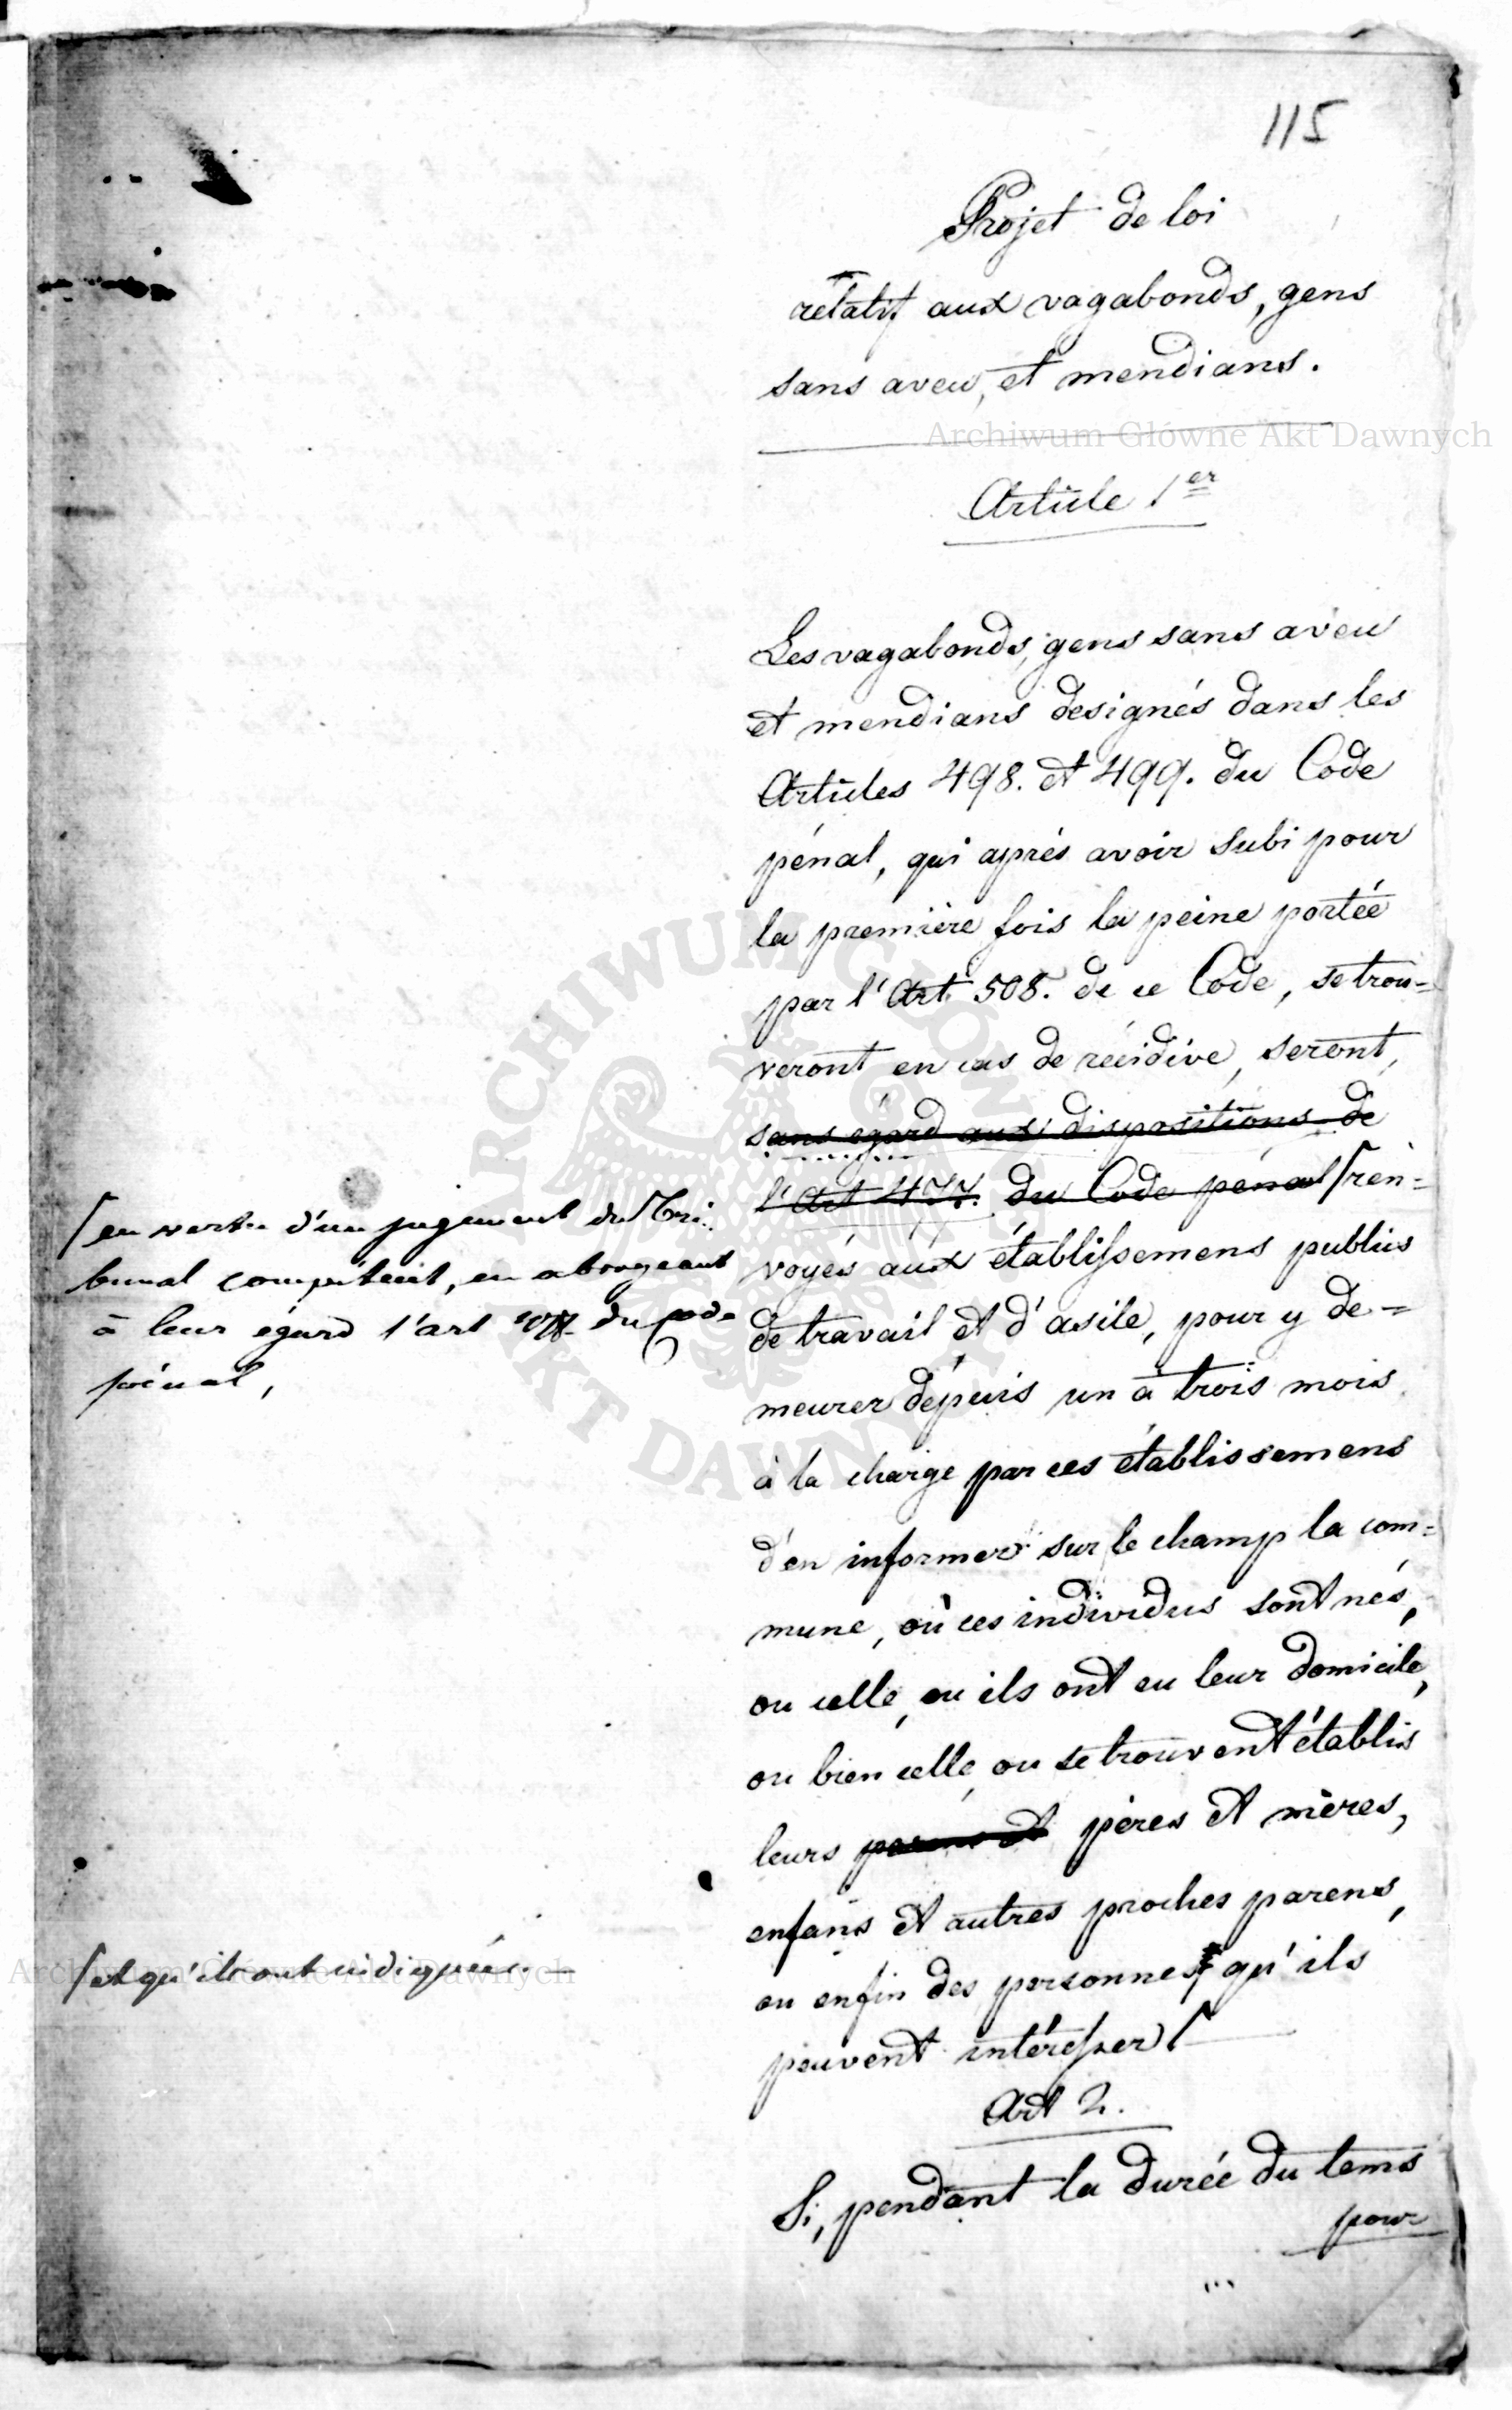 115
Projet de loi
relatif aux vagabonds, gens
sans aveu, et mendians.
Archiwum Główne Akt Dawnych
Article 1er
Les vagabonds, gens sans aveu
et mendians designés dans les
Articles 498. et 499. du Code
pénal, qui aprés avoir subi pour
la première fois la peine portée
par l'Art. 508. de ce Code, se trou=
veront en cas de récidive, seront,
sans égard aux dispositions de
l'Art 477. du Code pénal ⌈ren=
voyés aux établissemens publics
de travail et d'asile, pour y de=
meurer depuis un à trois mois
à la charge par ces établissemens
d'en informer sur le champ la com=
mune, où ces individus sont nés,
ou celle, ou ils ont eu leur domicile,
ou bien celle, ou se trouvent établis
leurs parens et pères et mères,
enfans et autres proches parens,
ou enfin des personnes, qu'ils
peuvent intéresser⌈
Art 2.
Si, pendant la durée du tems
pour
⌈en vertu d'un jugement du Tri-
bunal compétent, en abrogeant
à leur égard l'art 477 du code
pénal,
⌈et qu'ils ont indiquées.
Archiwum Główne Akt Dawnych
ARCHIWUM GŁÓWNE AKT DAWNYCH